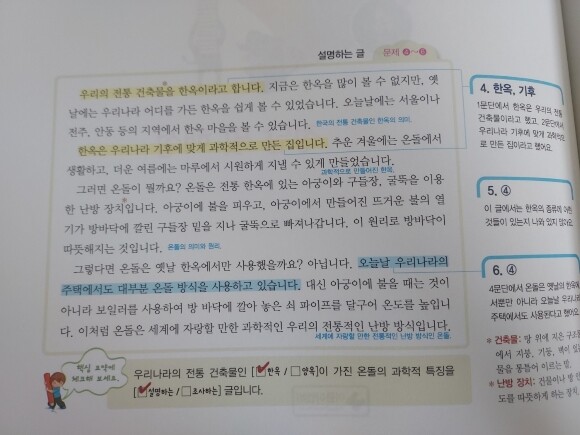 설명하는 글 문제 4~6
우리의 전통 건축물을 한옥이라고 합니다. 지금은 한옥을 많이 볼 수 없지만, 옛
날에는 우리나라 어디를 가든 한옥을 쉽게 볼 수 있었습니다. 오늘날에는 서울이나
전주, 안동 등의 지역에서 한옥 마을을 볼 수 있습니다. 한국의 전통 건축물인 한옥의 의미.
한옥은 우리나라 기후에 맞게 과학적으로 만든 집입니다. 추운 겨울에는 온돌에서
생활하고, 더운 여름에는 마루에서 시원하게 지낼 수 있게 만들었습니다.
과학적으로 만들어진 한옥.
그러면 온돌이 뭘까요? 온돌은 전통 한옥에 있는 아궁이와 구들장, 굴뚝을 이용
한 난방 장치입니다. 아궁이에 불을 피우고, 아궁이에서 만들어진 뜨거운 불의 열
기가 방바닥에 깔린 구들장 밑을 지나 굴뚝으로 빠져나갑니다. 이 원리로 방바닥이
따뜻해지는 것입니다. 온돌의 의미와 원리.
그렇다면 온돌은 옛날 한옥에서만 사용했을까요? 아닙니다. 오늘날 우리나라의
주택에서도 대부분 온돌 방식을 사용하고 있습니다. 대신 아궁이에 불을 때는 것이
아니라 보일러를 사용하여 방 바닥에 깔아 놓은 쇠 파이프를 달구어 온도를 높입니
다. 이처럼 온돌은 세계에 자랑할 만한 과학적인 우리의 전통적인 난방 방식입니다.
세계에 자랑할 만한 전통적인 난방 방식인 온돌.
핵심 요약에
체크해 보세요.
우리나라의 전통 건축물인 [☑한옥 / □양옥]이 가진 온돌의 과학적 특징을
[☑설명하는 / □조사하는] 글입니다.
4. 한옥, 기후
1문단에서 한옥은 우리의 전통
건축물이라고 했고, 2문단에서
우리나라 기후에 맞게 과학적으
로 만든 집이라고 했어요.
5. ④
이 글에서는 한옥의 종류에 어떤
것들이 있는지 나와 있지 않아요.
6. ④
4문단에서 온돌은 옛날의 한옥에
서뿐만 아니라 오늘날 우리나라
주택에서도 사용된다고 했어요.
* 건축물: 땅 위에 지은 구조
에서 지붕, 기둥, 벽이 있
물을 통틀어 이르는 말.
* 난방 장치: 건물이나 방 안
도를 따뜻하게 하는 장치.